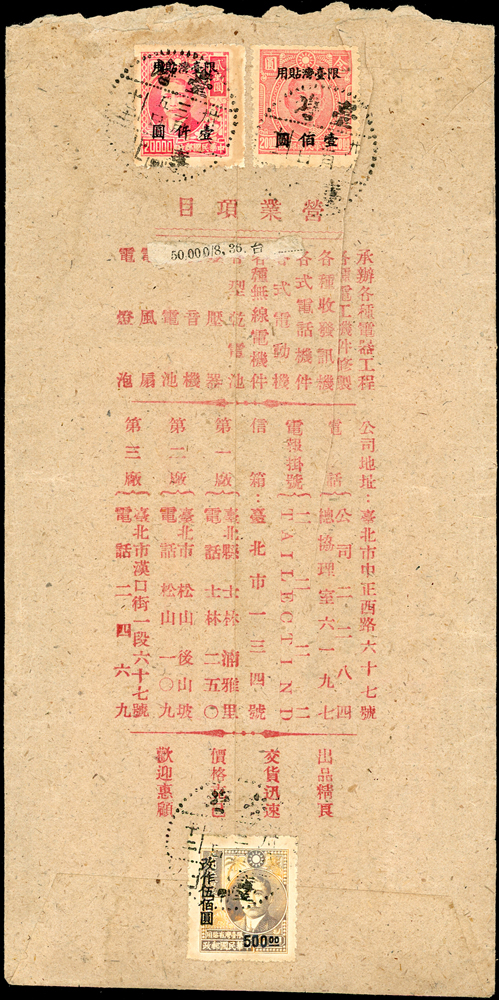 限臺灣貼用
壹仟圓
20000
中華民國郵政
限臺灣貼用
壹佰圓
營業項目
50,000/8, 36. 台
承辦各種電器工程
各種電工機件修製
各種收發訊機
各式電話機件
各式電動機
各種無線電機件
電池
壓器
音機
電池
風扇
電燈泡
公司地址：臺北市中正西路六十七號
電話 公司二二八四
總協理室六一九七
電報掛號 二三三二
TAILECTIND
信箱：臺北市一三四號
第一廠 臺北縣士林湳雅里
電話士林二五〇
第二廠 臺北市松山後山坡
電話松山一〇九
第三廠 臺北市漢口街一段六十七號
電話二四六九
出品精良
交貨迅速
價格
歡迎惠顧
改作伍佰圓
500.00
限臺灣貼用
中華民國郵政